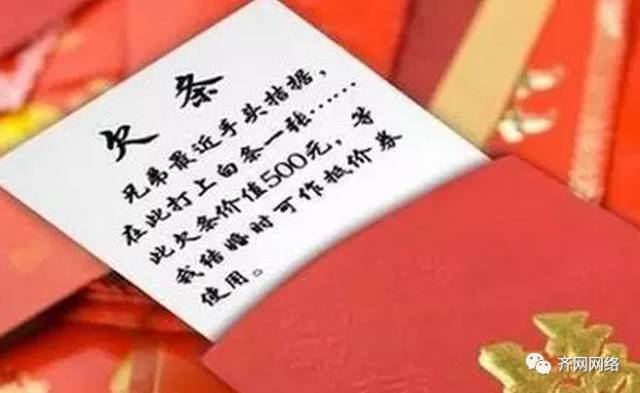 欠条
兄弟最近手头拮据，
在此打上白条一张……
此欠条价值500元，等
我结婚时可作抵价券
使用。
齐网网络